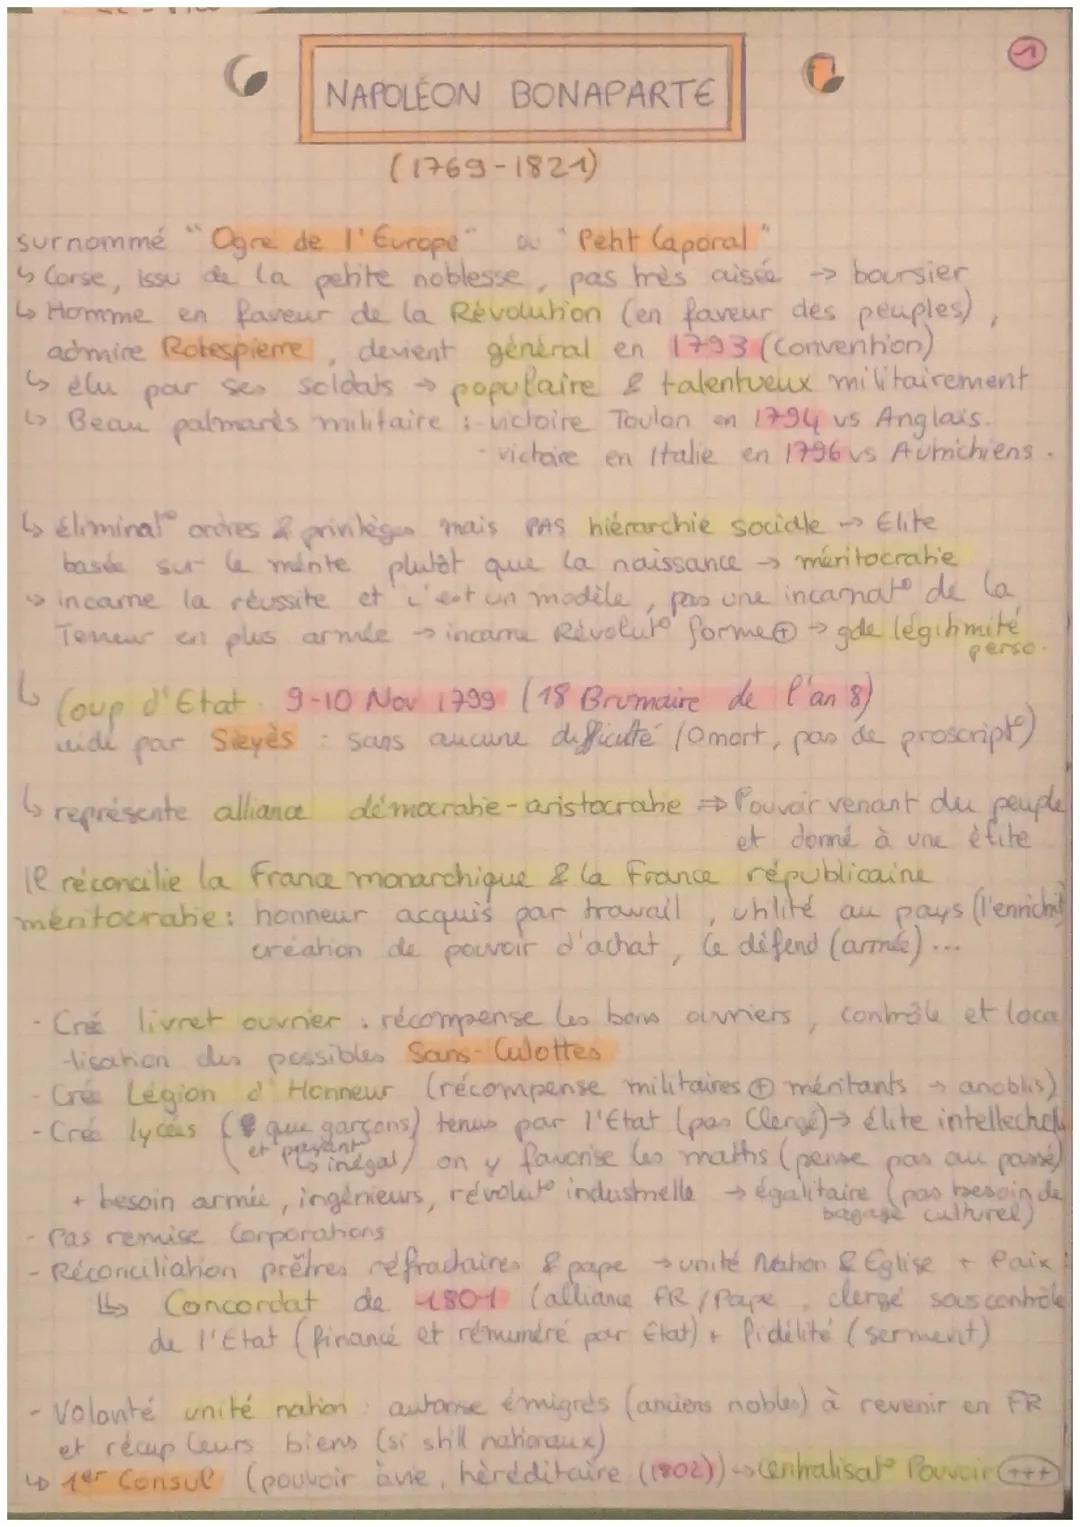 1
NAPOLÉON BONAPARTE
(1769-1821)
surnommé "Ogre de l'Europe" ou "Petit Caporal"
↳ Corse, issu de la petite noblesse, pas très aisée → boursier
↳ Homme en faveur de la Révolution (en faveur des peuples),
admire Robespierre, devient général en 1793 (Convention)
↳ élu par ses soldats → populaire & talentueux militairement
↳ Beau palmarès militaire : - victoire Toulon en 1794 vs Anglais.
- victoire en Italie en 1796 vs Autrichiens.
↳ éliminat° ordres & privilèges mais PAS hiérarchie sociale → Elite
basée sur le mérite plutôt que la naissance → méritocratie
↳ incarne la réussite et c'est un modèle, pas une incarnat° de la
Terreur en plus armée → incarne Révolut° forme ⊕ → gde légitimité
perso.
↳ Coup d'Etat 9-10 Nov 1799 (18 Brumaire de l'an 8)
aidé par Sieyès : sans aucune difficulté (0 mort, pas de proscript°)
↳ représente alliance démocratie-aristocratie ⇒ Pouvoir venant du peuple
et donné à une élite
Il réconcilie la France monarchique & la France républicaine
méritocratie : honneur acquis par travail, utilité au pays (l'enrichit
création de pouvoir d'achat, le défend (armée)...
- Crée livret ouvrier : récompense les bons ouvriers, contrôle et loca
-lisation des possibles Sans-Culottes
- Crée Légion d'Honneur (récompense militaires ⊕ méritants → anoblis)
- Crée lycées (que garçons) tenus par l'Etat (pas Clergé) → élite intellectuel
et payant
↳ inégal) on y favorise les maths (pense pas au passé)
+ besoin armée, ingénieurs, révolut° industrielle → égalitaire (pas besoin de
bagage culturel)
- Pas remise Corporations
- Réconciliation prêtres réfractaires & pape → unité Nation & Eglise + Paix
↳ Concordat de 1801 (alliance FR/Pape, clergé sous contrôle
de l'Etat (financé et rémunéré par Etat) + fidélité (serment)
- Volonté unité nation : autorise émigrés (anciens nobles) à revenir en FR
et récup leurs biens (si still nationaux)
↳ 1er Consul (pouvoir à vie, héréditaire (1802)) → Centralisat° Pouvoir +++